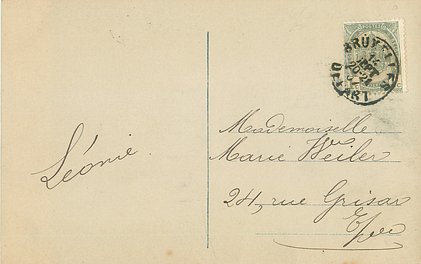 BRUXELLES
DEPART
Léonie.
Mademoiselle
Marie Weiler
24, rue Grisar